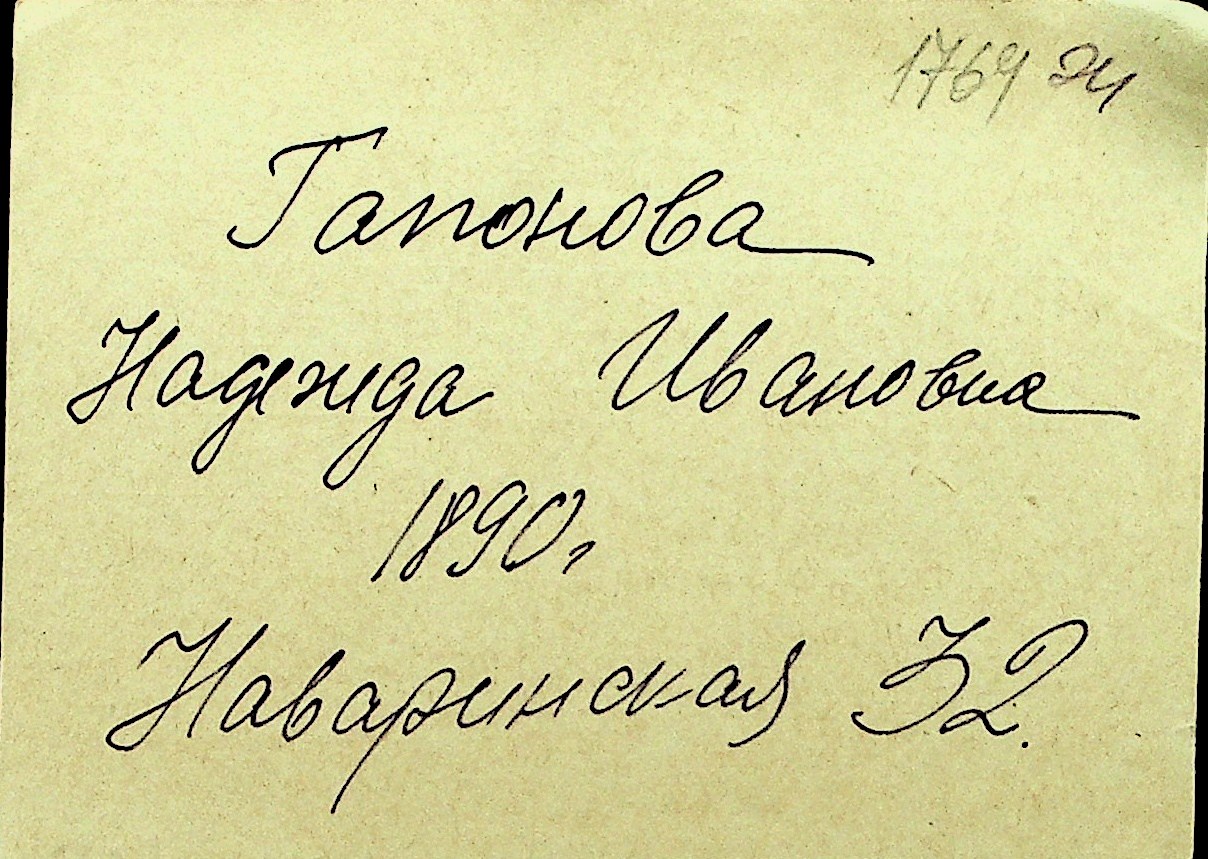 1769
Гапонова
Надежда Ивановна
1890г
Наваринская 32.